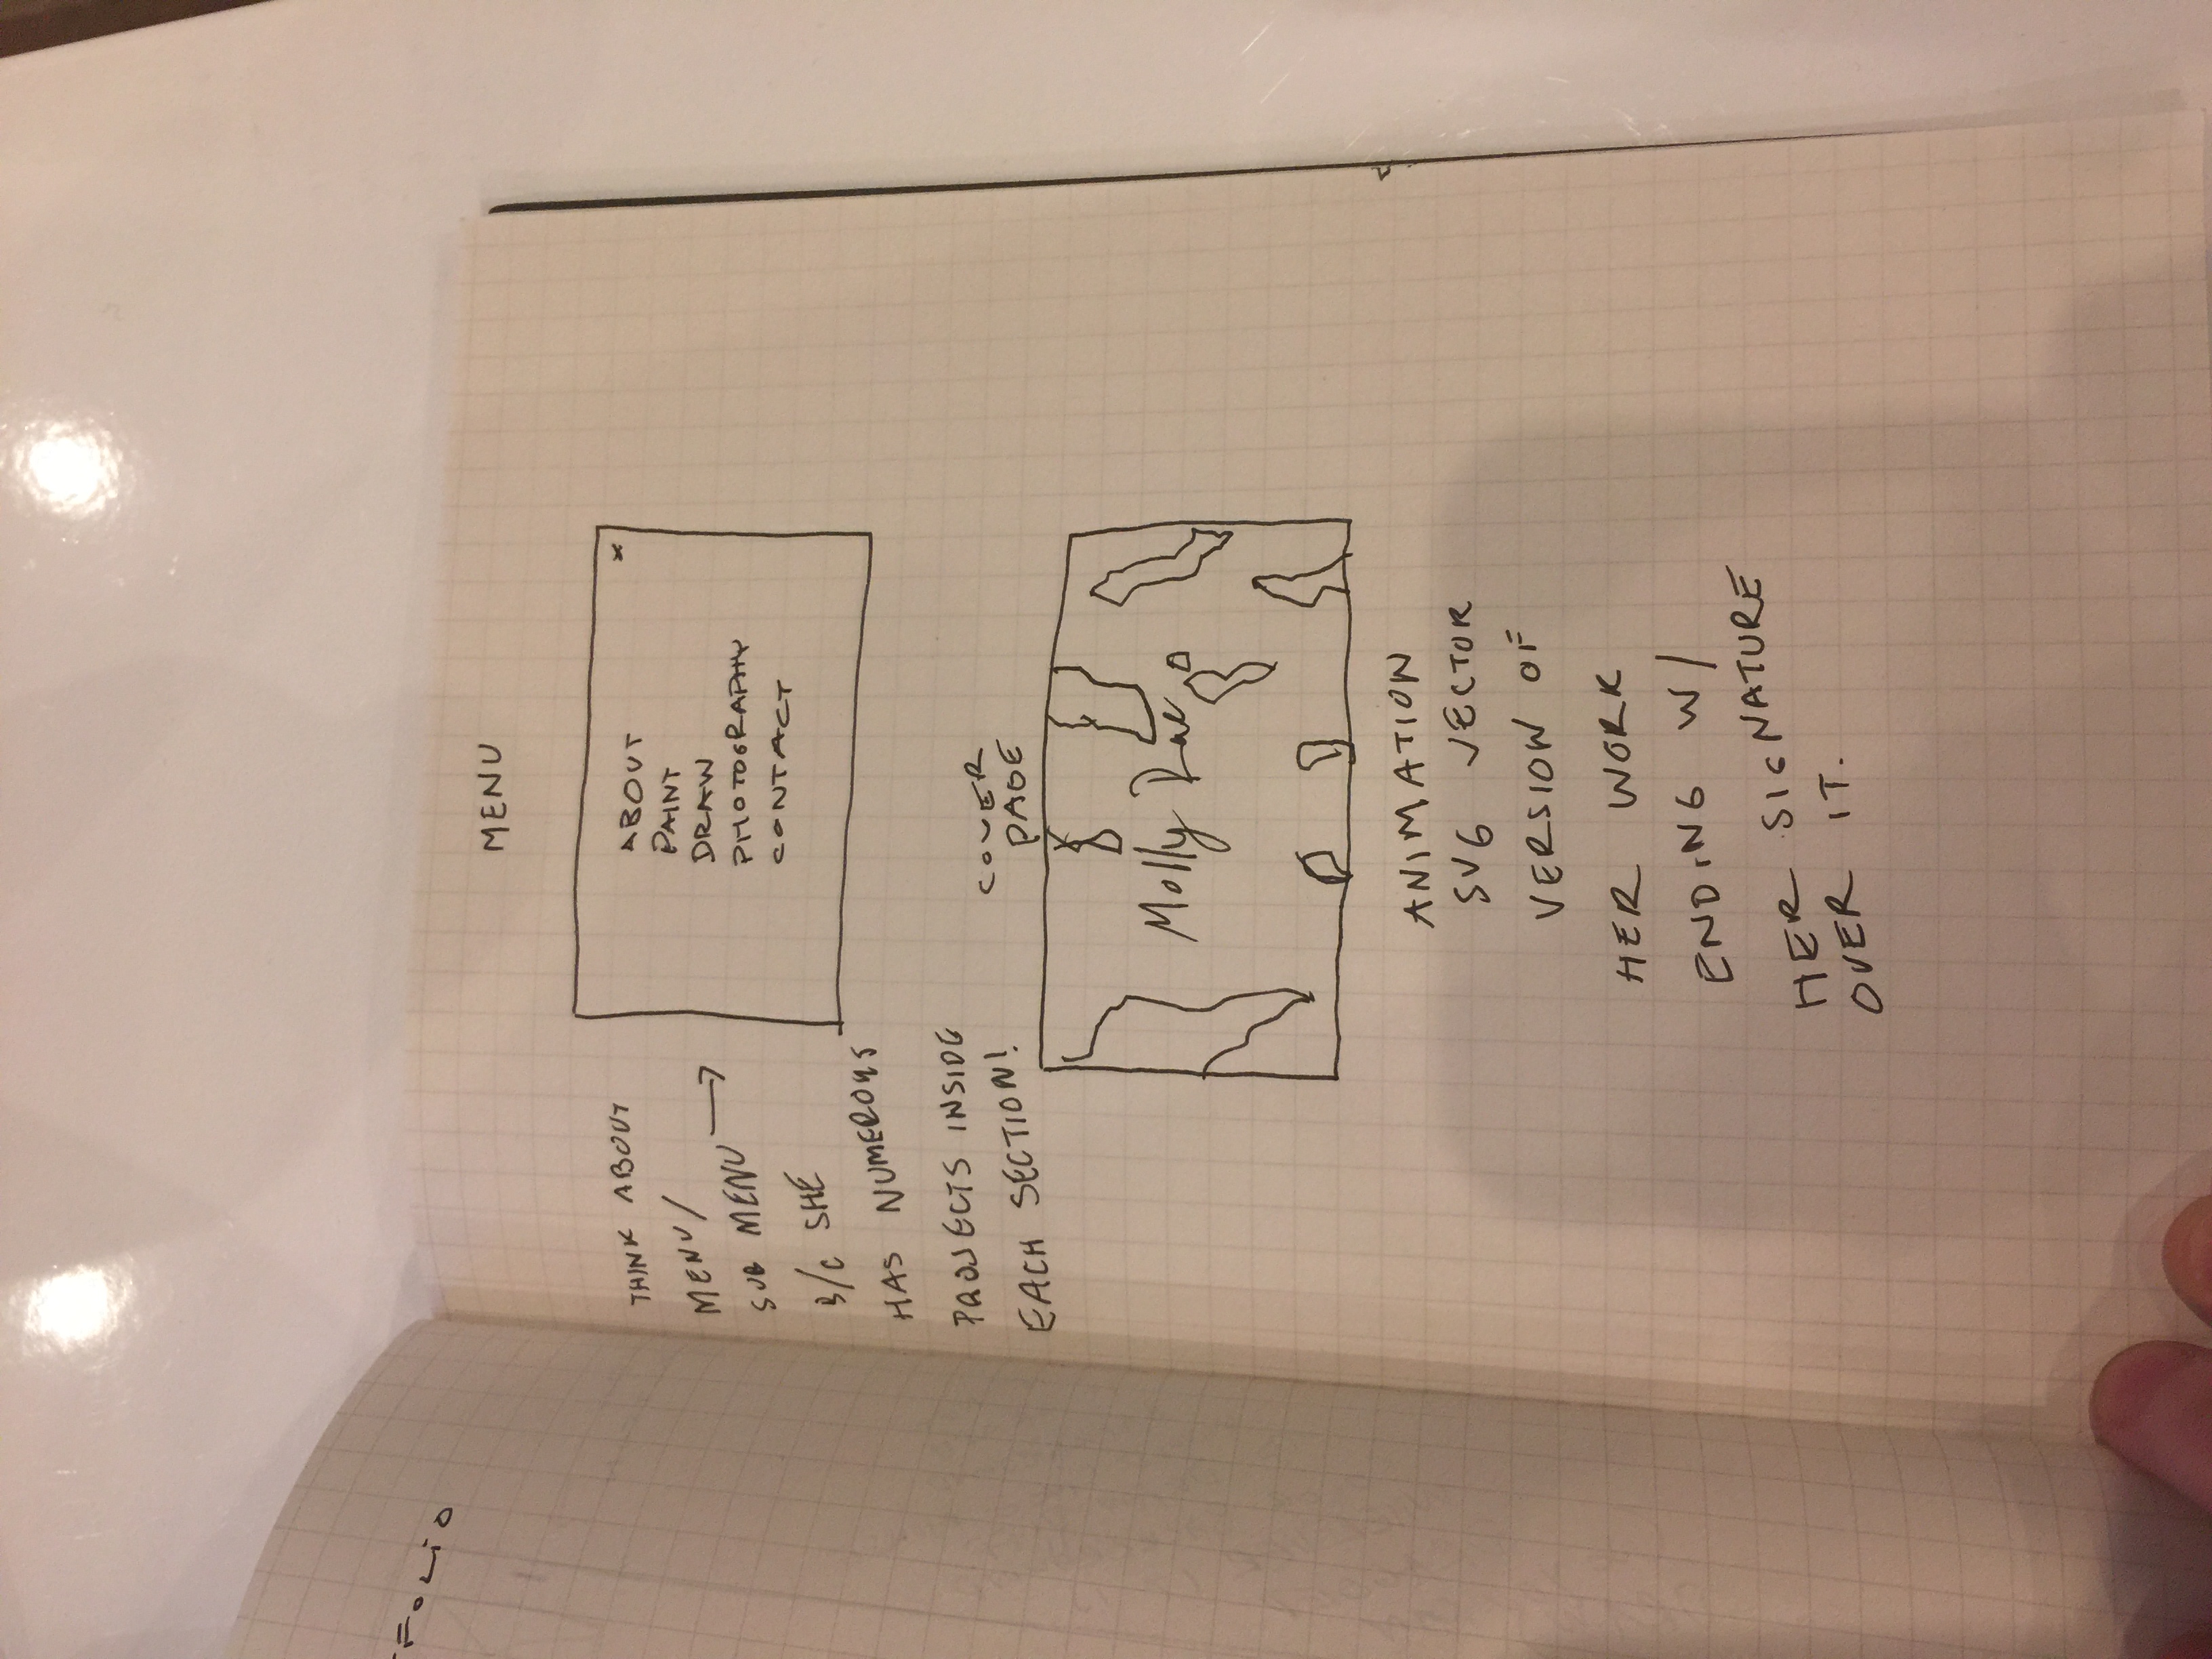 FOLIO
MENU
THINK ABOUT
MENU/
SUB MENU →
B/C SHE
HAS NUMEROUS
PROJECTS INSIDE
EACH SECTION!
x
ABOUT
PAINT
DRAW
PHOTOGRAPHY
CONTACT
COVER
PAGE
Molly Rae
ANIMATION
SVG VECTOR
VERSION OF
HER WORK
ENDING W/
HER SIGNATURE
OVER IT.